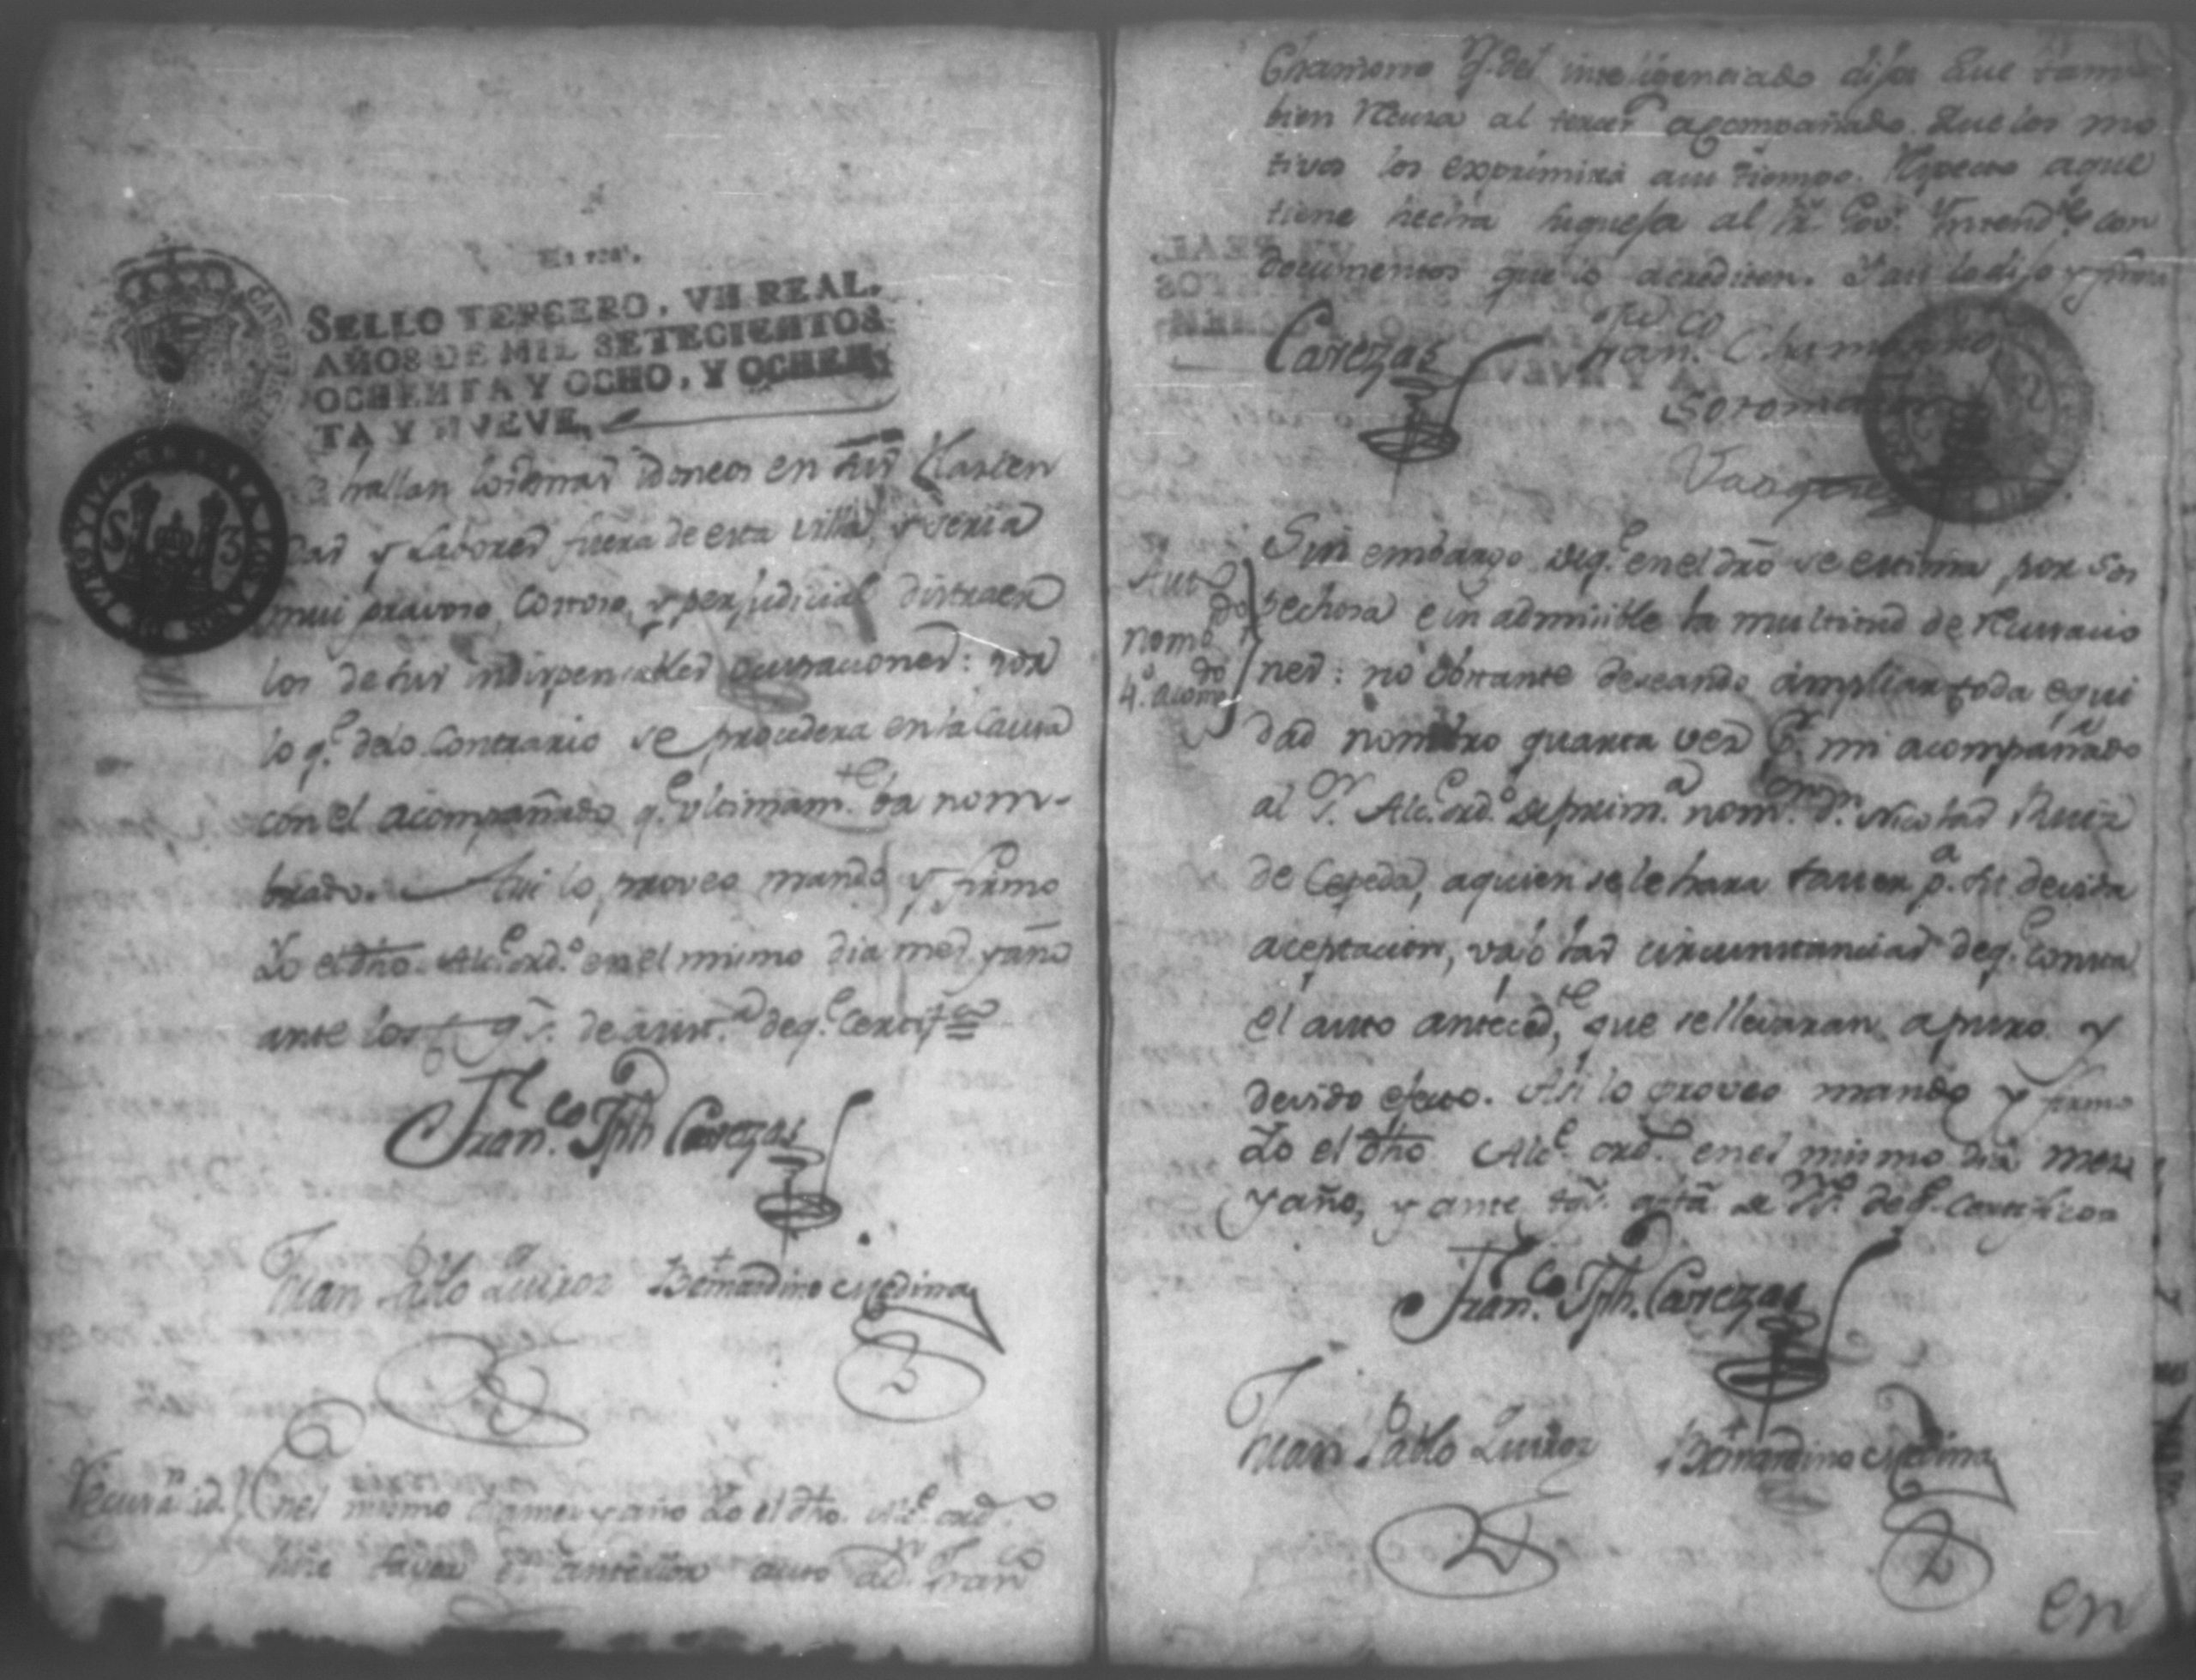 SELLO TERCERO, VN REAL.
AÑOS DE MIL SETECIENTOS
OCHENTA Y OCHO, Y OCHEN-
TA Y NUEVE.
S 3
hallan los demas idoneos en sus Hacien
das y Labores fuera de esta villa, y seria
mui gravoso, Costoso, y perjudicial distraer
los de sus indispensables ocupaciones: por
lo q.e delo Contrario se procedera en la Causa
con el acompañado q.e ultimam.te ba nom-
brado. Asi lo proveo mando y firmo
Yo el dho. Alc.e ord.o en el mismo dia mes y año
ante los de asist.a de q.e Certif.co
Fran.co Jph Carezas
Juan Pablo Quiros Bernardino Medina
Recusa.n id. En el mismo dia mes y año Yo el dho. Alc.e ord.o
hice saver el anterior auto a D.n Fran.co
Chamorro q.e del inteligenciado dijo Que tam
bien Recusa al tercer acompañado. Que los mo
tivos los exprimirá a su tiempo. Respecto aque
tiene hecha su quexa al S.r Gov.r Intend.te con
documentos que lo acrediten. Y asi lo dijo y firmo
Carezas Fran.co Chamorro
Sotomaior
Vasquez
Auto
do
nomb
4.o acom.do
Sin embargo deq.e en el dro se estima por sos
pechosa e in admisible la multitud de Recusacio
nes: no obstante deseando ampliar toda equi
dad nombro quarta vez p.r mi acompañado
al S.r Alc.e ord.o de prim.a nom.on D.n Nicolas Ruiz
de Cepeda, aquien se le hara saver p.a su devida
aceptacion, vajo las circunstancias deq.e consta
el auto anteced.te, que se llevaran a puro y
devido efecto. Asi lo proveo mando y firmo
Yo el dho Alc.e ord.o en el mismo dia mes
y año, y ante tgs. deq.e Certifico
Fran.co Jph. Carezas
Juan Pablo Quiros Bernardino Medina
en